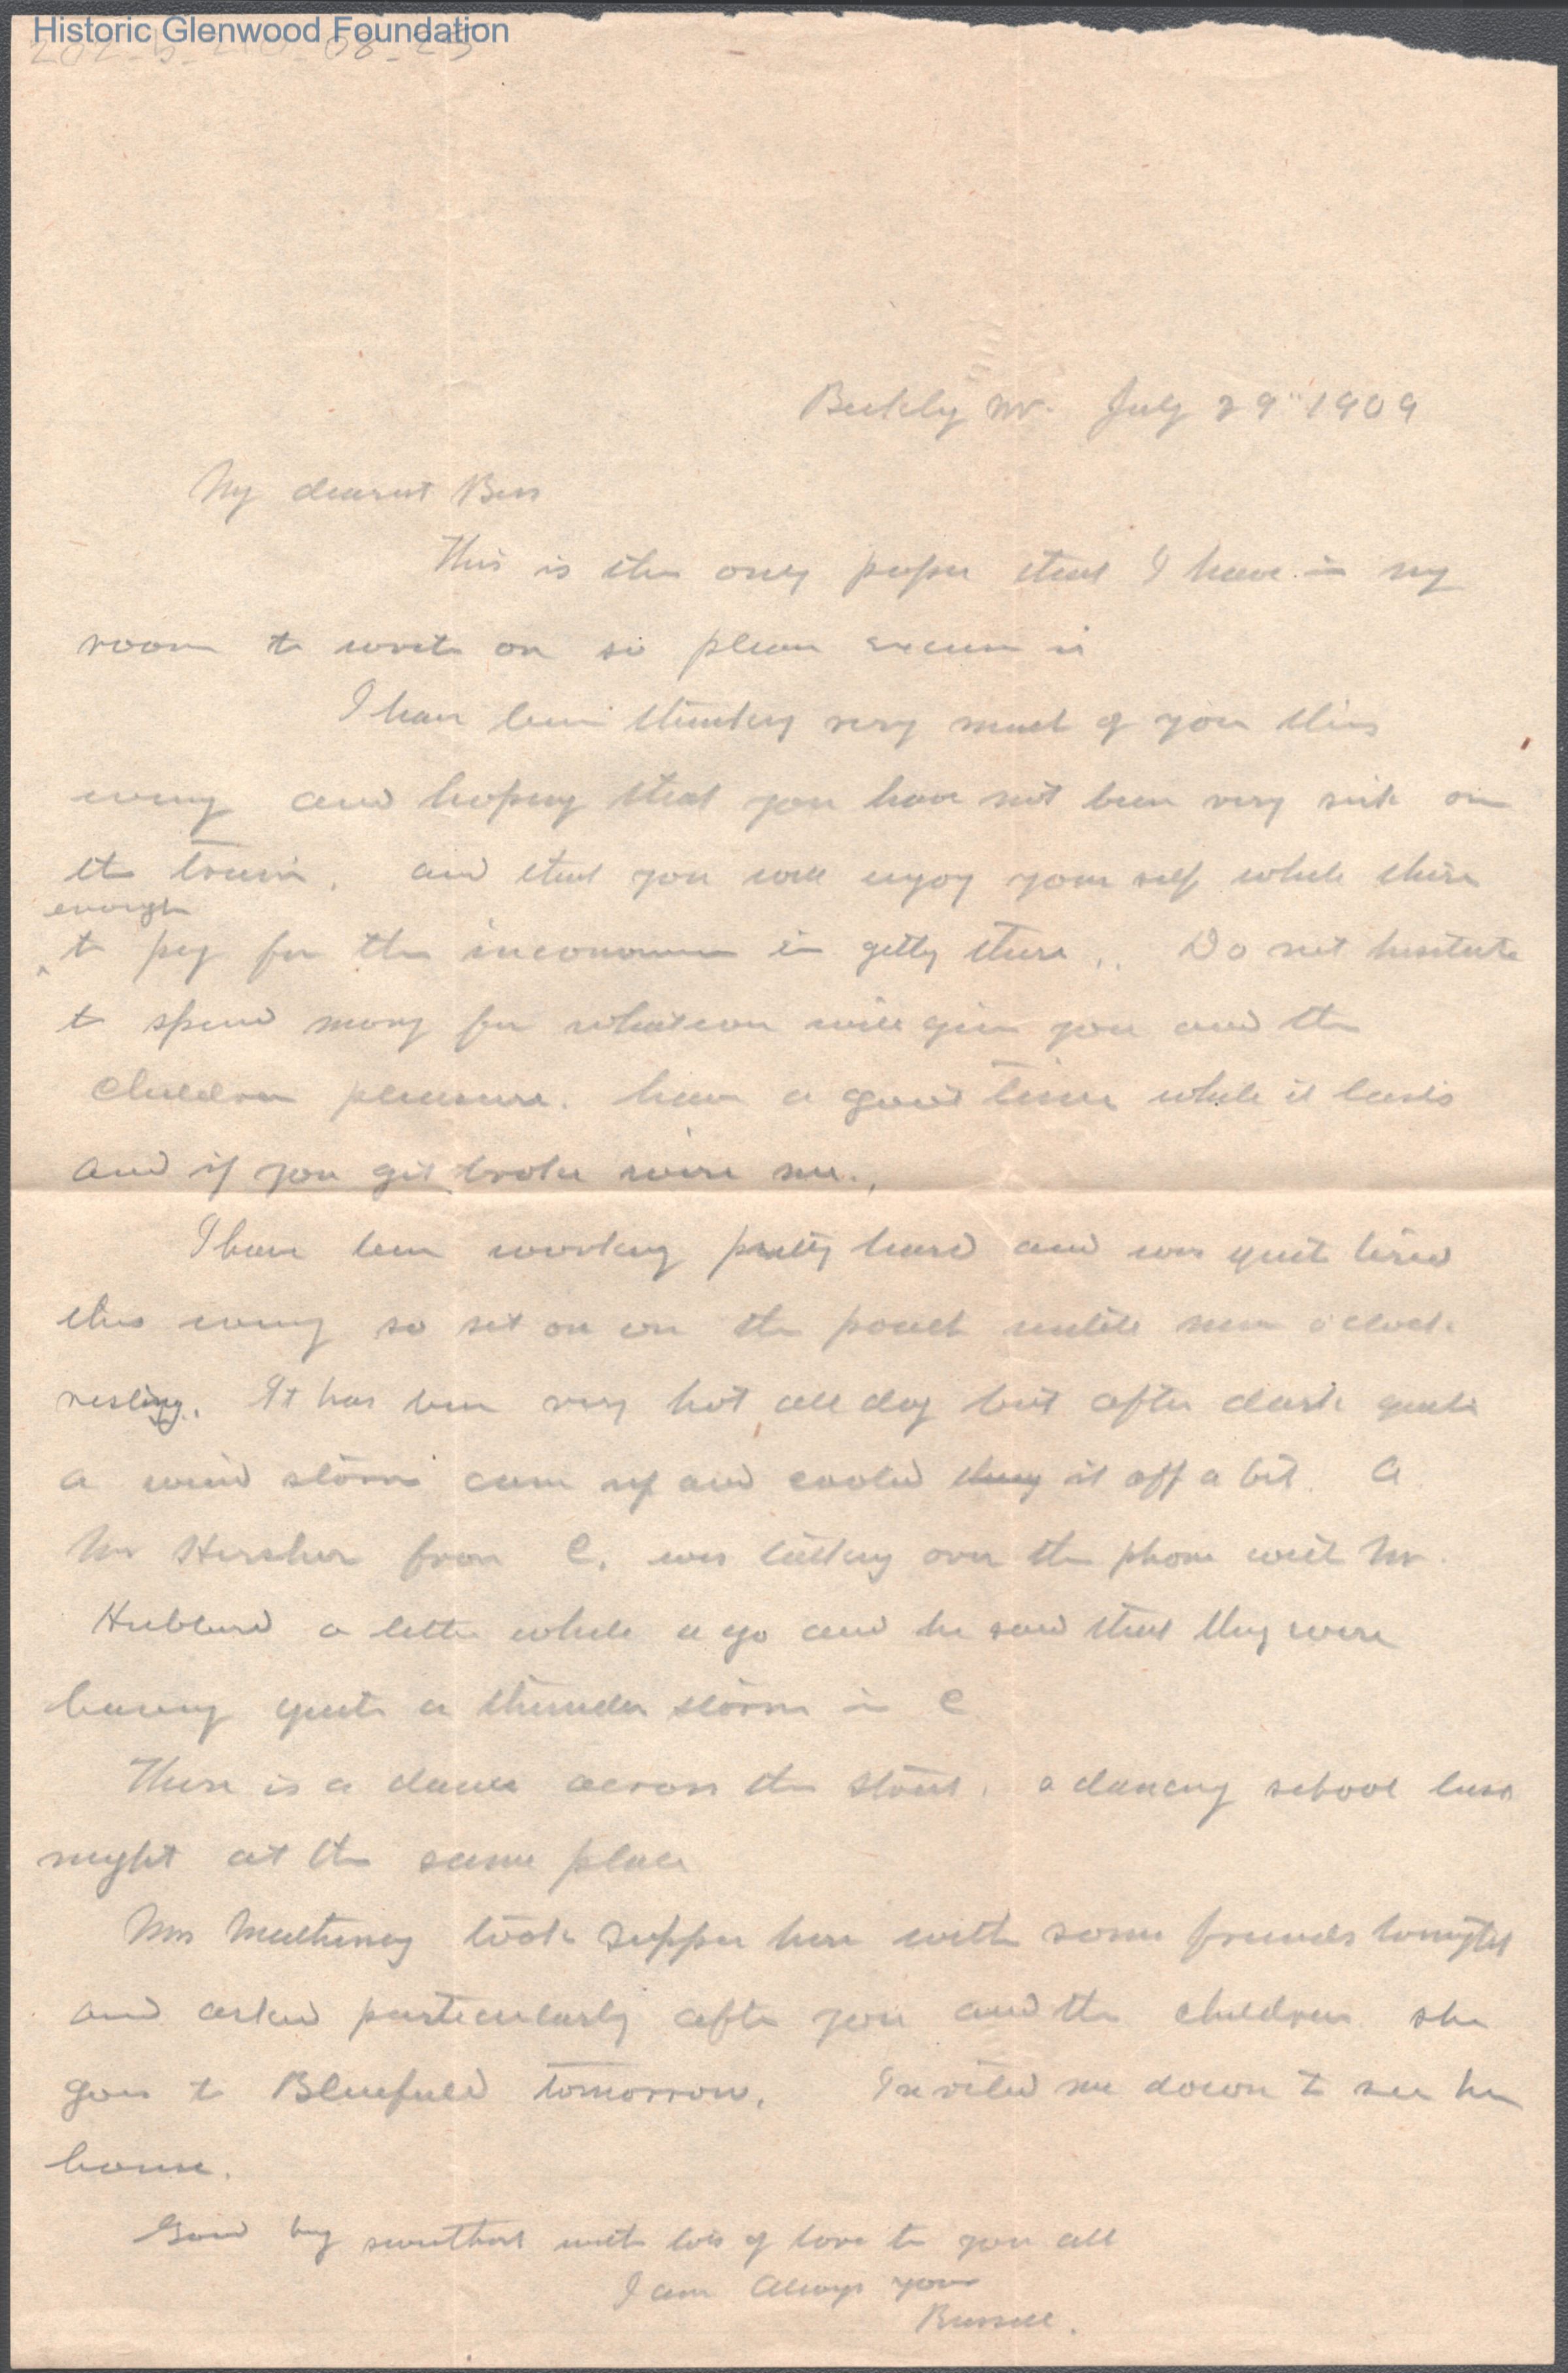 Historic Glenwood Foundation
202-b-210-08-25
Beckly W. July 29" 1909
My dearest Bess
This is the only paper that I have in my
room to write on so please excuse it
I have been thinking very much of you this
evening and hoping that you have not been very sick on
the train. and that you will enjoy your self while there
enough
to pay for the in getting there.. Do not hesitate
to spend money for whatever will give you and the
children pleasure. have a good time while it lasts
and if you get broke wire me.,
I have been working pretty hard and was quite tired
this evening so set on on the porch until nine o'clock.
resting. It has been very hot all day but after dark quite
a wind storm came up and cooled thing it off a bit. A
Mr Hersher from C. was talking over the phone with Mr.
Hubbard a little while a go and he said that they were
having quite a thunder storm in C
There is a dance across the street. a dancing school last
night at the same place
Mrs Matheney took supper here with some friends tonight
and asked particularly after you and the children she
goes to Bluefield tomorrow. Invited me down to see her
house.
Good by sweetheart with lots of love to you all
I am Always your
Russell.